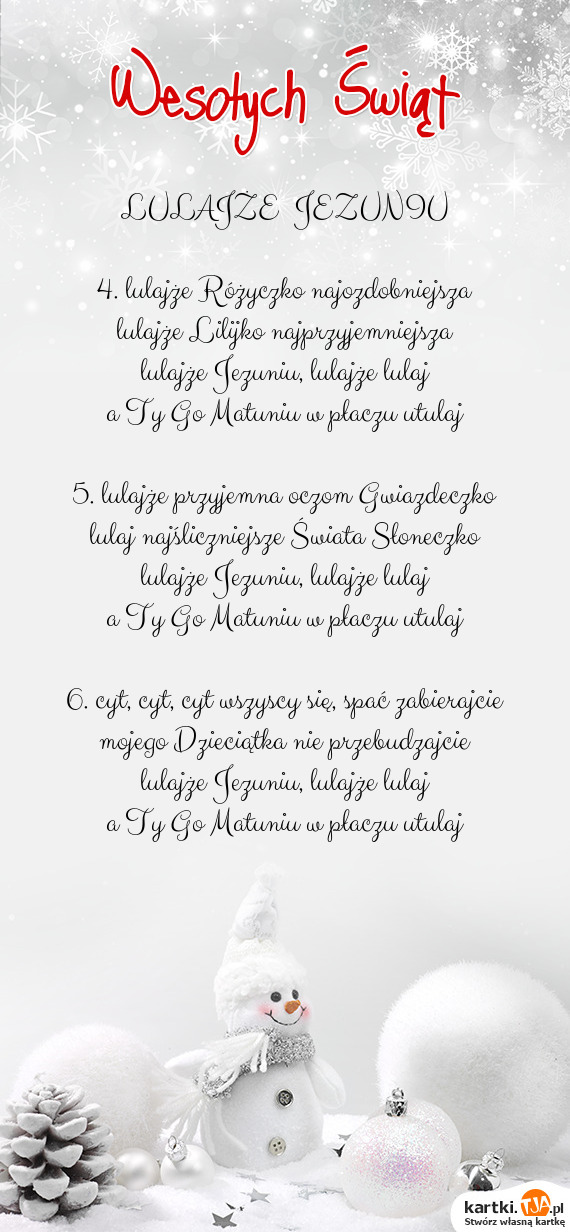 Wesołych Świąt
LULAJŻE JEZUNIU
4. lulajże Różyczko najozdobniejsza
lulajże Lilijko najprzyjemniejsza
lulajże Jezuniu, lulajże lulaj
a Ty Go Matuniu w płaczu utulaj
5. lulajże przyjemna oczom Gwiazdeczko
lulaj najśliczniejsze Świata Słoneczko
lulajże Jezuniu, lulajże lulaj
a Ty Go Matuniu w płaczu utulaj
6. cyt, cyt, cyt wszyscy się, spać zabierajcie
mojego Dzieciątka nie przebudzajcie
lulajże Jezuniu, lulajże lulaj
a Ty Go Matuniu w płaczu utulaj
kartki.TJA.pl
Stwórz własną kartkę